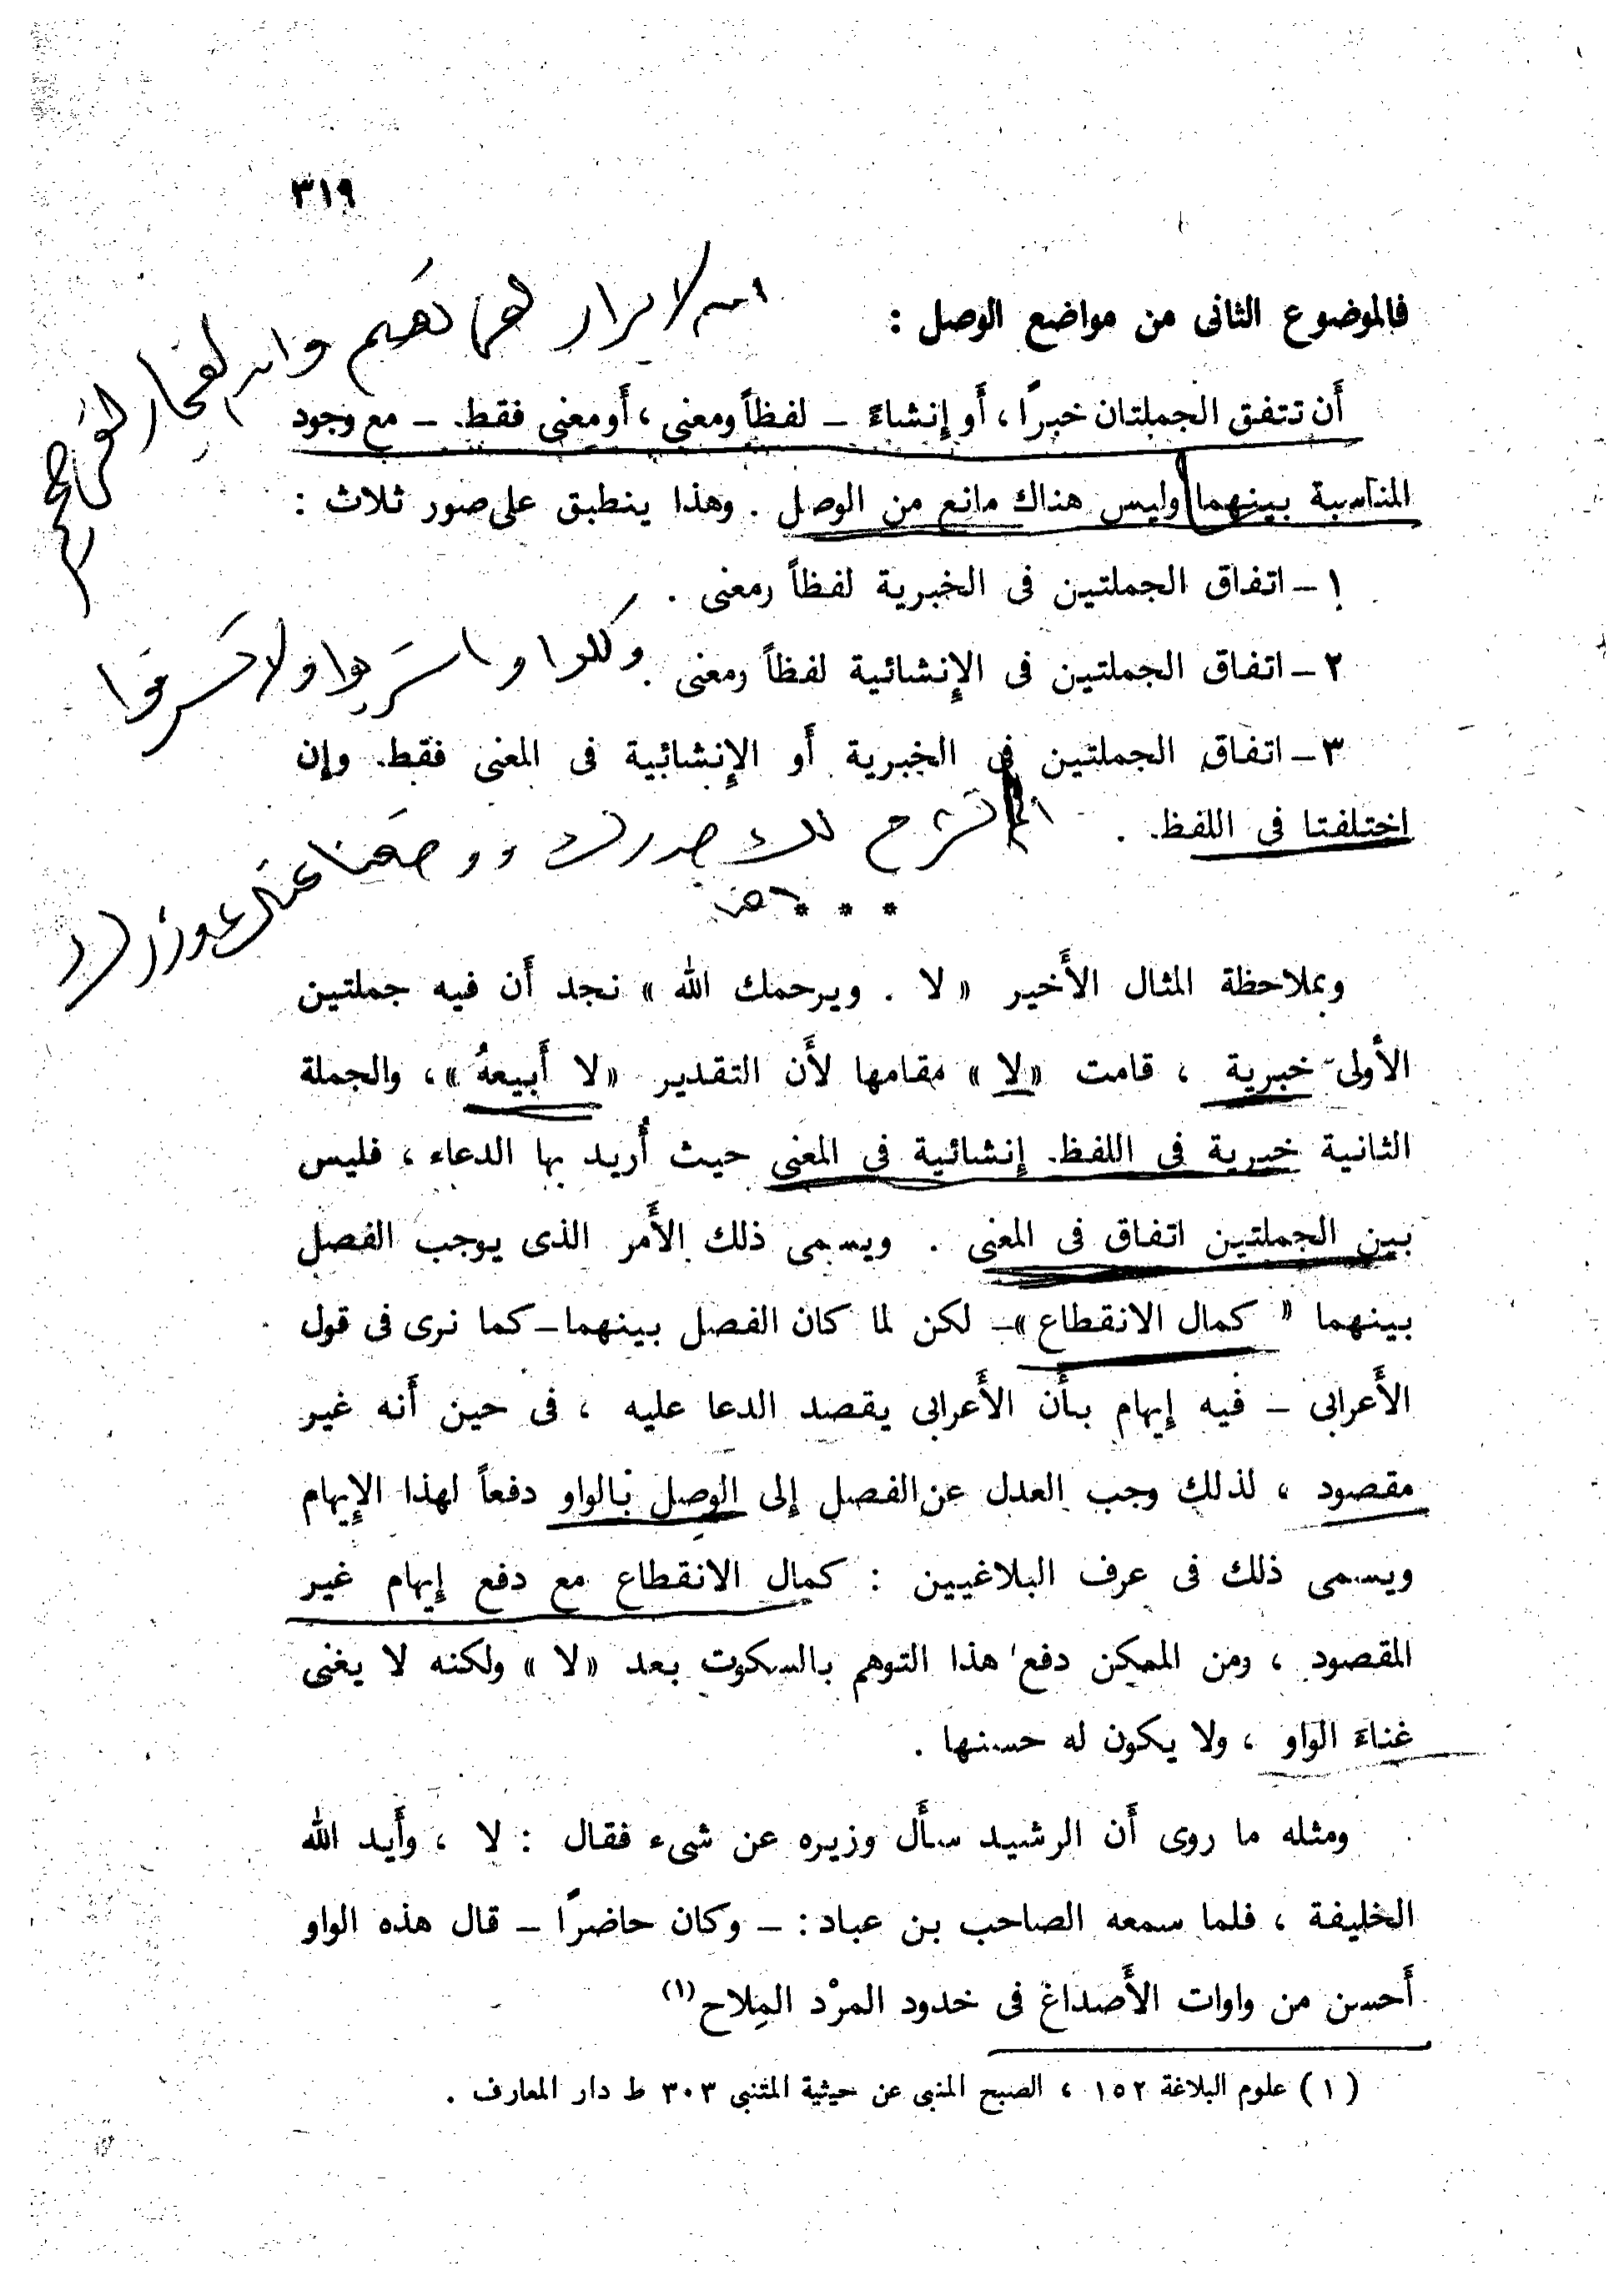 ٣١٩
فالموضوع الثانى من مواضع الوصل :
إن الأبرار لفى نعيم وإن الفجار لفى جحيم
أن تتفق الجملتان خبرًا ، أو إنشاءً – لفظاً ومعنى ، أو معنى فقط. – مع وجود
المناسبة بينهما وليس هناك مانع من الوصل . وهذا ينطبق على صور ثلاث :
١ – اتفاق الجملتين فى الخبرية لفظاً ومعنى .
٢ – اتفاق الجملتين فى الإنشائية لفظاً ومعنى .
وكلوا واشربوا ولا تسرفوا
٣ – اتفاق الجملتين فى الخبرية أو الإنشائية فى المعنى فقط. وإن
اختلفتا فى اللفظ. .
ألم نشرح لك صدرك ووضعنا عنك وزرك
* * *
وبملاحظة المثال الأَخير « لا . ويرحمك الله » نجد أَن فيه جملتين
الأولى خبرية ، قامت « لا » مقامها لأَن التقدير « لا أَبيعهُ » ، والجملة
الثانية خبرية فى اللفظ. إنشائية فى المعنى حيث أُريد بها الدعاء ، فليس
بين الجملتين اتفاق فى المعنى . ويسمى ذلك الأَمر الذى يوجب الفصل
بينهما « كمال الانقطاع » – لكن لما كان الفصل بينهما – كما نرى فى قول
الأَعرابى – فيه إيهام بأَن الأَعرابى يقصد الدعا عليه ، فى حين أَنه غير
مقصود ، لذلك وجب العدل عن الفصل إلى الوصل بالواو دفعاً لهذا الإيهام
ويسمى ذلك فى عرف البلاغيين : كمال الانقطاع مع دفع إيهام غير
المقصود ، ومن الممكن دفع هذا التوهم بالسكوت بعد « لا » ولكنه لا يغنى
غناءَ الواو ، ولا يكون له حسنها .
ومثله ما روى أَن الرشيد سأَل وزيره عن شىء فقال : لا ، وأَيد الله
الخليفة ، فلما سمعه الصاحب بن عباد : – وكان حاضرًا – قال هذه الواو
أَحسن من واوات الأَصداغ فى خدود المرْد المِلاح (١)
(١) علوم البلاغة ١٥٢ ، الصبح المنبى عن حيثية المتنبى ٣٠٣ ط دار المعارف .